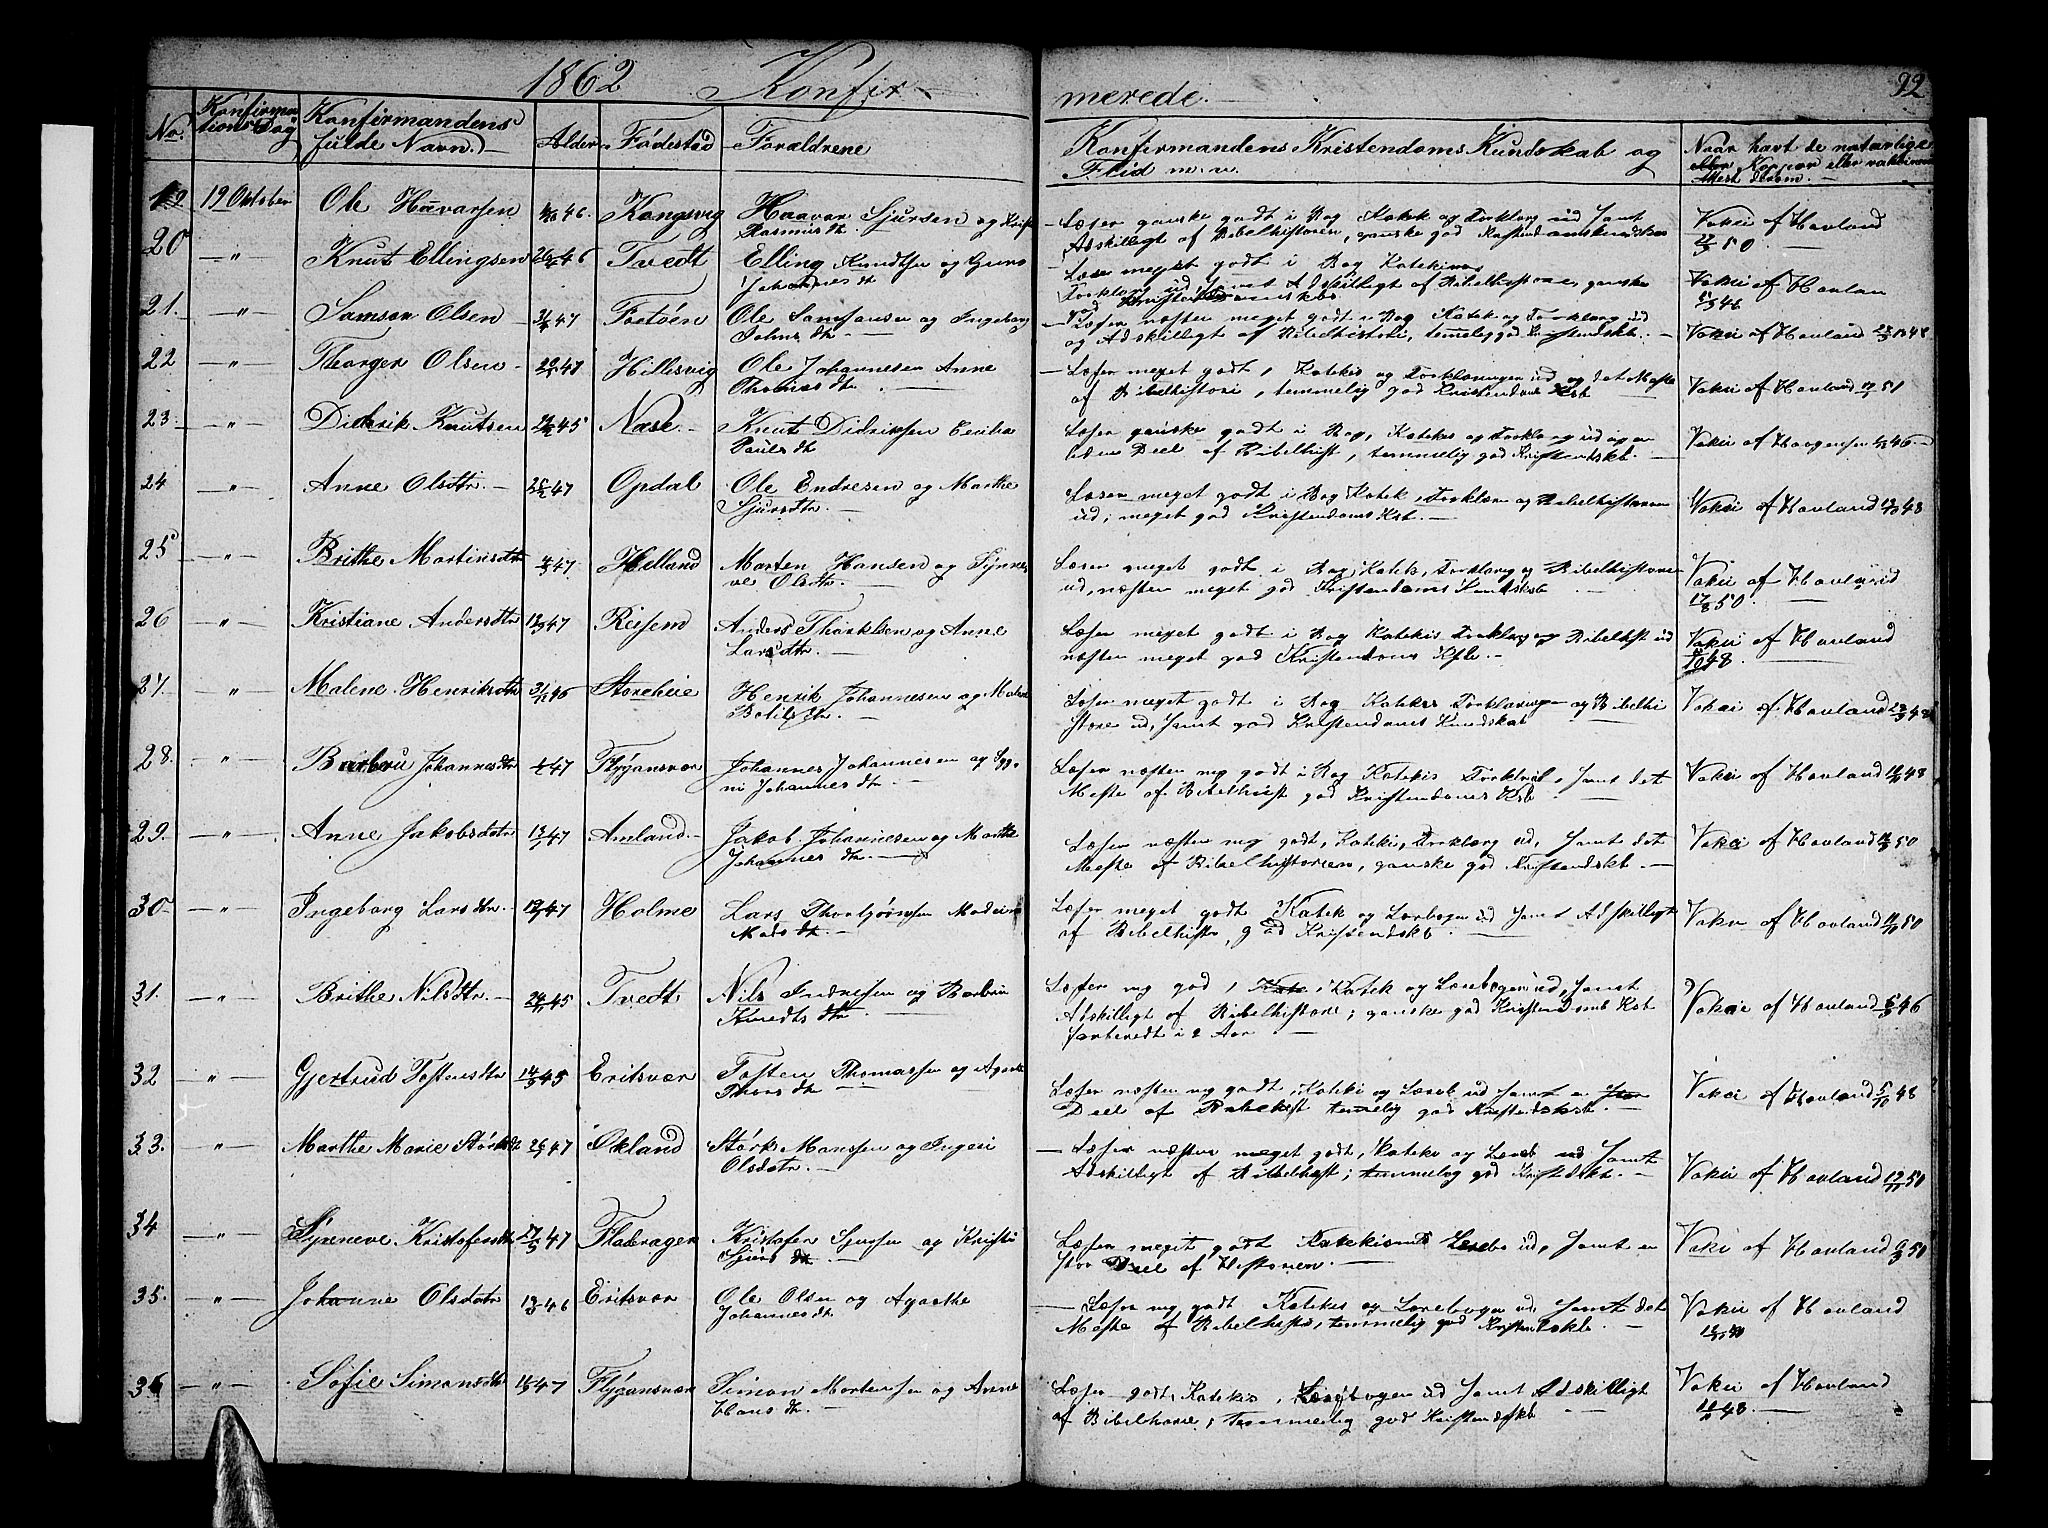 1862 Konfir-
merede.
92
No.
Konfirma-
tions Dag
Konfirmandens
fulde Navn.
Alder
Fødestad
Forældrene
Konfirmandens Kristendoms Kundskab og
Flid m. v.
Naar havt de naturlige
Kopper eller vakcineret
Attest derom.
19 19 Oktober Ole Havarsen 46. Kongsvig Haavar Sjursen og
Rasmusdt
Læser ganske godt i Bog Katek og Forklarg ud samt
Adskilligt af Bibelhistorien, ganske god Kristendomskundskab
Vakci af Havland
50.
20 " Knut Ellingsen 46 Tvedt Elling Knudtsen og Guro
Johannesdt
Læser meget godt i Bog Katekismus
Forklarg ud, samt Adskilligt af Bibelhistorie ganske
god Kristendomskab
Vakci af Havlan
46
21. " Samson Olsen 47 Foståen Ole Samsonsen og Ingeborg
Johnsdt
Læser næsten meget godt i Bog Katek og Forklarg ud
og Adskilligt af Bibelhistori, temmelig god Kristendskb.
Vakci af Havland 48
22 " Olsen 47 Hillisvig Ole Johannesen Anne
Tholnasdt
Læser meget godt, Katekis og Forklaringen ud og det Meste
af Bibelhistori, temmelig god Kristendoms Ksb
Vakci af Havland 51
23. " Didrik Knutsen 45 Nase. Knut Didriksen Cecilia
Paulsdt
Læser ganske godt i Bog, Katekis og Forklarg ud og en
liden Deel af Bibelhist, temmelig god Kristendskb.
Vakci af 46
24 " Anne Olsdtr. 47 Opdal Ole Endresen og Marthe
Sjursdtr.
Læser meget godt i Bog Katek, Forklar og Bibelhistorien
ud, meget god Kristendoms Kst.
Vakci af Havland 48
25 " Brithe Martinsdtr 47 Helland Morten Hansen og Synne
ve Olsdtr.
Læser meget godt i Bog, Katek, Forklarg og Bibelhistorie
ud, næsten meget god Kristendoms Kundskb
Vakci af Havland
17/8 50.
26 " Kristiane Andersdtr 47 Reisem Anders Tharkelsen og Anne
Larsdtr
Læser meget godt i Bog Katekis Forklarg og Bibelhist ud
næsten meget god Kristendoms Ksb.
Vakci af Havland
48
27. " Malene Henriksdtr 46 Storeheie Henrik Johannesen og Malene
Botilsdtr.
Læser meget godt i Bog Katekis Forklaringen og Bibelhi
store ud, samt god Kristendoms Kundskab
Vakci af Havland 48
28. " Barbru Johannesdtr 47 Flygansvær Johannes Johannesen og Sygge
ni Johannesdtr.
Læser næsten mg godt i Bog Katekis Forklar, samt det
Meste af Bibelhist god Kristendoms Ksb
Vakci af Havland 48
29. " Anne Jakobsdatr 13/1 47 Amland. Jakob Johannesen og Marthe
Johannesdtr.
Læser næsten mg godt, Kateki, Forklarg ud, samt det
Meste af Bibelhistorien, ganske god Kristendskb.
Vakci af Havland 50
30 " Ingeborg Larsdtr. 47 Holme Lars Thorbjørnsen
Madsdtr.
Læser meget godt Katek og Lærbogen ud samt Adskilligt
af Bibelhisto, god Kristendskb.
Vakci af Havland 50
31. " Brithe Nilsdtr. 45 Tvedt Nils Indresen og Barbru
Knudtsdtr.
Læser mg god, i Katek og Lærebogen ud, samt
Adskilligt af Bibelhistorie, ganske god Kristendomb Kst
forberedt i 2 Aar
Vakci af Havland 46
32 " Gjertrud Tostensdtr 45 Eritsvær Tosten Thomassen og Agathe
Thorsdtr
Læser næsten mg godt, Kateki og Læreb ud samt en
Deel af Bibelhist temmelig god Kristendskb.
Vakci af Havland 5/10 48
33. " Marthe Marie Størksdt 47 Økland Størk Monssen og Ingeri
Olsdatr.
Læser næsten meget godt, Kateke og Læreb ud samt
Adskilligt af Bibelhist, temmelig god Kristdskb.
Vakci af Havland 50
34 " Synneve Kristofersdtr 47 Fladerager Kristofer Sjursen og Kristi
Sjursdtr.
Læser meget godt Katekismus Lærebo ud, samt en
stor Deel af Historien.
Vakci af Havland 50
35. " Johanne Olsdatr 46 Eritsvær Ole Olsen og Agathe
Johannesdtr.
Læser mg godt Katekis og Lærebogen ud, samt det
Meste af Bibelhisto, temmelig god Kristendskb.
Vakci af Havland
36 " Sofie Simonsdtr 47 Flygansvær Simon Mortensen og Anne
Hansdtr.
Læser godt, Katekis, Lærebogen ud samt Adskilligt
af Bibelhistorie, temmelig god Kristendskb
Vakci af Havland
48.